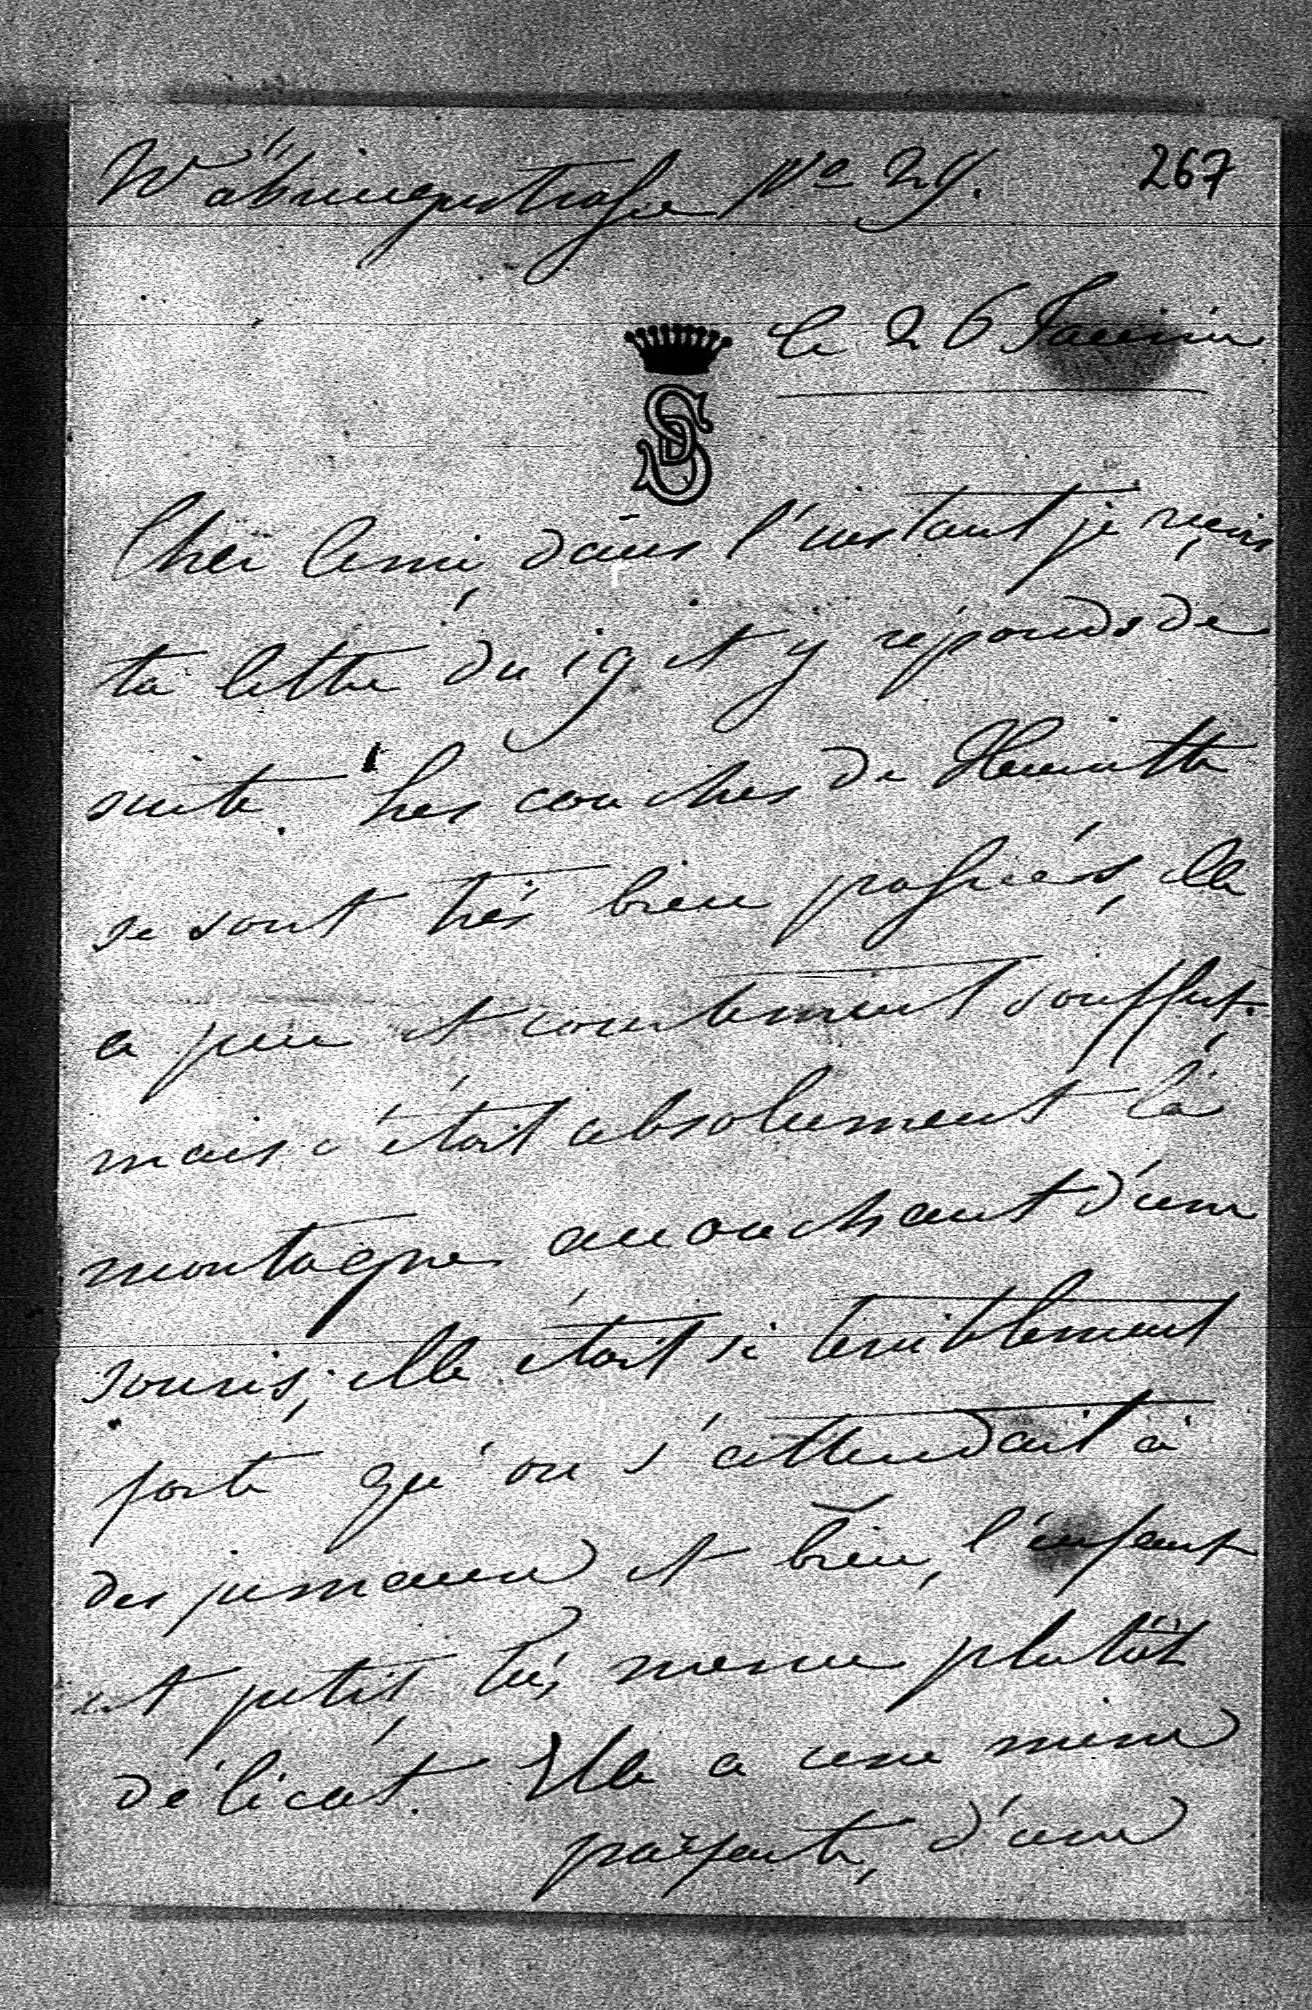 Währingerstraße No 29.
267
le 26 Janvier
SD
Cher Ami, dans l'instant je reçois
ta lettre du 19 et y réponds de
suite. Les couches de Henriette
se sont très bien passées, elle
a peu et courtement souffert.
mais c'était absolument la
montagne accouchant d'une
souris; elle était si terriblement
forte qu'on s'attendait à
des jumeaux et bien, l'enfant
est petit, très menu plutôt
délicat. Elle a une mine
parfaite, d'une